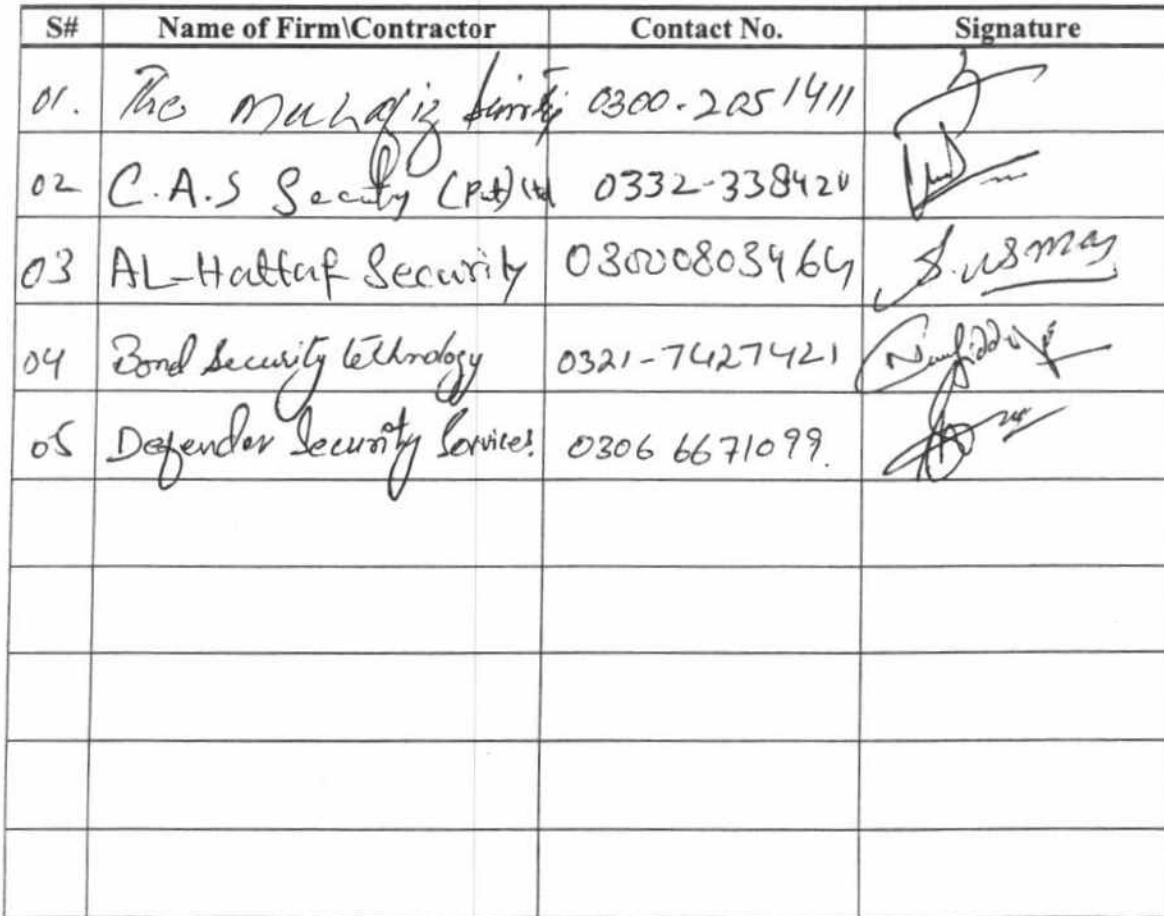 S# Name of Firm\Contractor Contact No. Signature
01. The Muhafiz Security 0300-2051411
02 C.A.S Secuity (Pvt) Ltd 0332-338420
03 AL-Hattaf Security 03000803464 S. usman
04 Bond Security technology 0321-7427421
05 Defender Security Services. 0306 6671099.